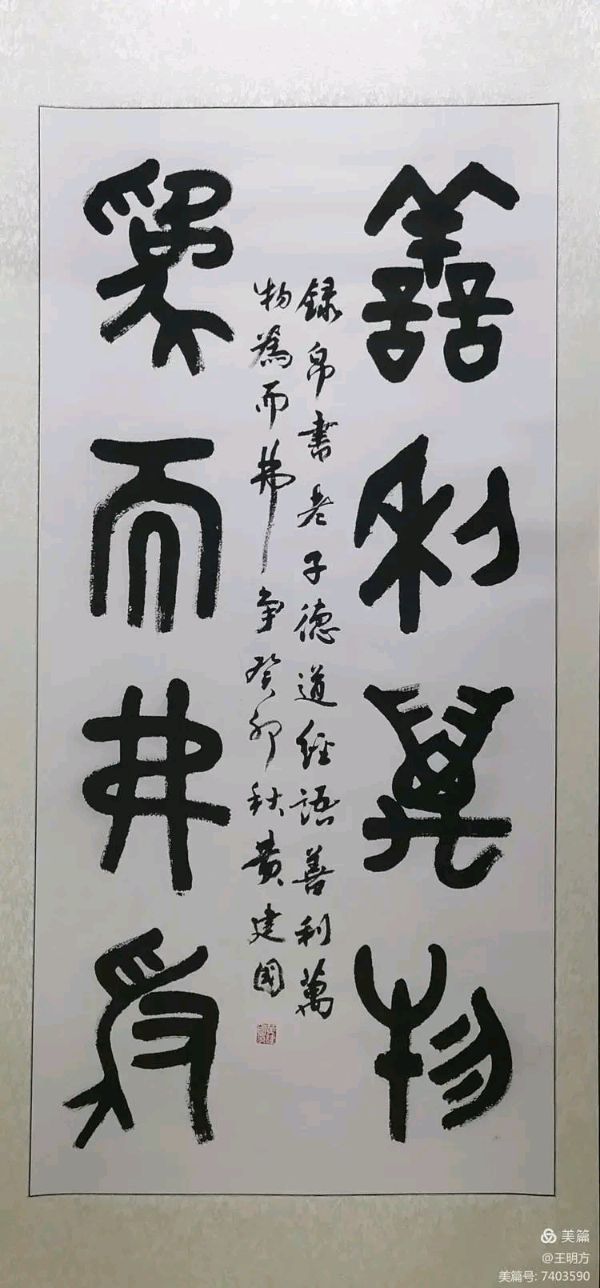 善利萬物
為而弗爭
録帛書老子德道經語善利萬
物為而弗爭癸卯秋黄建國
美篇
@王明方
美篇号: 7403590